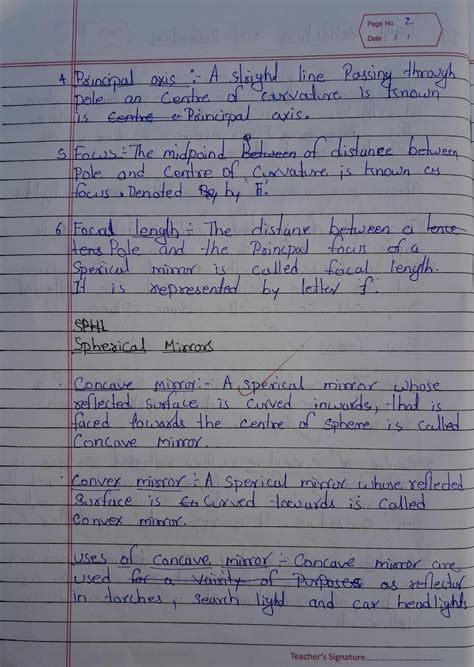 Page No. 2
Date : 1. 1
4 Principal axis :- A slright line Passing through
pole an Centre of curvature is Known
is Centre e Principal axis.
5 Focus :- The midpoind Between of distane between
Pole and Centre of Curvature is known as
focus. Denoted By by 'F'.
6 Focal length :- The distane between a tence
tens Pole and the Principal focus of a
Sperical mirror is called focal length.
It is represented by letter 'f'.
SPHI
Spherical Mirrors
· Concave Mirror :- A sperical mirror whose
reflected surface is curved inwards, that is
faced towards the centre of sphere is called
Concave mirror.
· Convex mirror :- A Sperical mirror whose reflected
Surface is Curved towards is Called
convex mirror.
Uses of Concave mirror :- Concave mirror are
used for a vairity of Purposes as reflector
in torches, search light and car headlights
Teacher's Signature